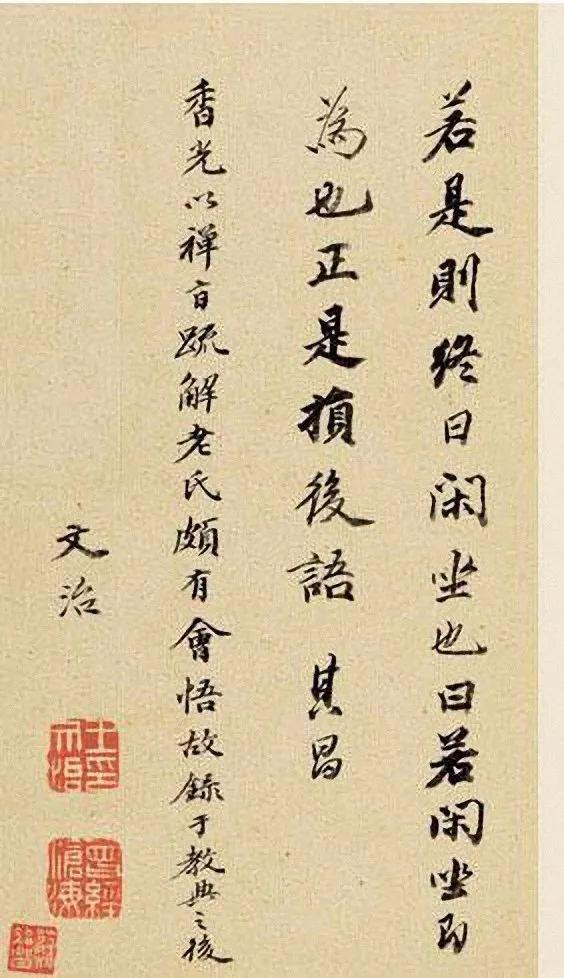 若是則終日閑坐也曰若閑坐即
為也正是損後語 其昌
香光以禅旨疏解老氏頗有會悟故錄于教典之後
文治
王印文治
曾經滄海